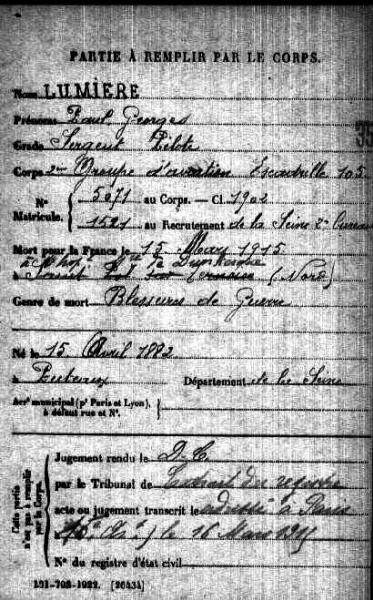 PARTIE À REMPLIR PAR LE CORPS.
Nom LUMIÈRE
Prénoms Paul Georges
Grade Sergent Pilote
Corps 2me Groupe d'aviation Escadrille 105
35
N° Matricule. 5071 au Corps. — Cl. 1902
1521 au Recrutement de la Seine 2e Bureau
Mort pour la France le 15 Mars 1915
à l'hôp. Dunkerque
à (Nord)
Genre de mort Blessures de Guerre
Né le 15 Avril 1882
à Puteaux Département de la Seine
Arrt municipal (pr Paris et Lyon), à défaut rue et N°.
Cette partie n'est pas à remplir par le Corps.
Jugement rendu le D.C.
par le Tribunal de Extrait du registre
acte ou jugement transcrit le adressé à Paris
le 16 Mars 1915
N° du registre d'état civil
101-708-1922. [26434]